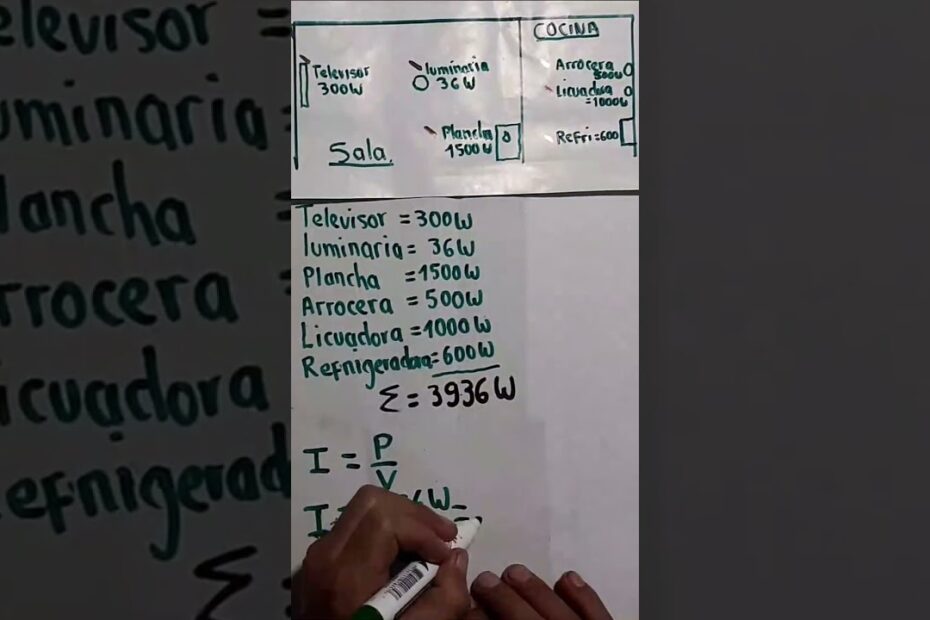 COCINA
Televisor
300W
luminaria
36W
Arrocera
500W
Licuadora
=1000W
Plancha
1500W
Refri=600
Sala.
Televisor = 300W
luminaria = 36W
Plancha = 1500W
Arrocera = 500W
Licuadora = 1000W
Refnigeradora = 600W
Σ = 3936W
I = P
V
I =
W